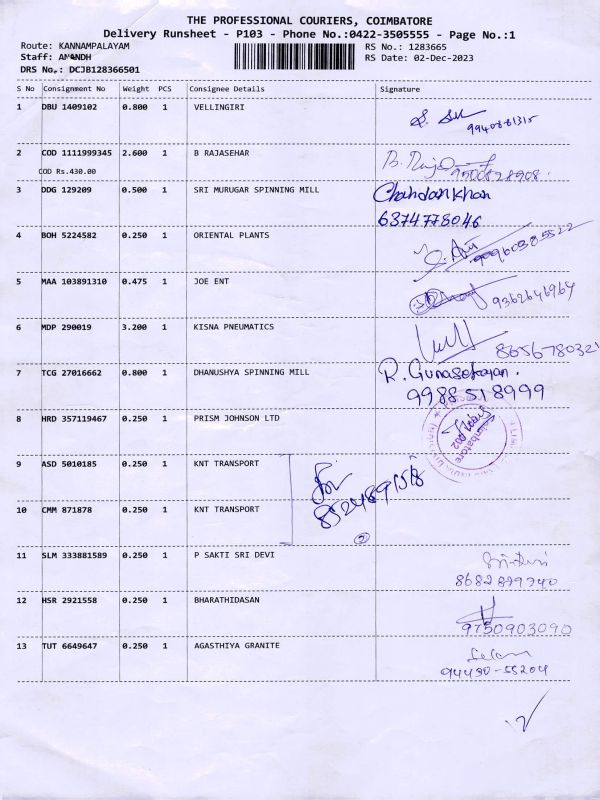 THE PROFESSIONAL COURIERS, COIMBATORE
Delivery Runsheet - P103 - Phone No.:0422-3505555 - Page No.:1
Route: KANNAMPALAYAM RS No.: 1283665
Staff: ANANDH RS Date: 02-Dec-2023
DRS No.: DCJB128366501
S No Consignment No Weight PCS Consignee Details Signature
1 DBU 1409102 0.800 1 VELLINGIRI
9940881315
2 COD 1111999345 2.600 1 B RAJASEHAR
COD Rs.430.00 9500828908
3 DDG 129209 0.500 1 SRI MURUGAR SPINNING MILL Chandankhan
6374778046
4 BOH 5224582 0.250 1 ORIENTAL PLANTS
5 MAA 103891310 0.475 1 JOE ENT
9362646964
6 MDP 290019 3.200 1 KISNA PNEUMATICS
8656780321
7 TCG 27016662 0.800 1 DHANUSHYA SPINNING MILL R. Gunasekaran.
9988518999
8 HRD 357119467 0.250 1 PRISM JOHNSON LTD
Coimbatore
9 ASD 5010185 0.250 1 KNT TRANSPORT
10 CMM 871878 0.250 1 KNT TRANSPORT
2
11 SLM 333881589 0.250 1 P SAKTI SRI DEVI
8682899740
12 HSR 2921558 0.250 1 BHARATHIDASAN
9750903090
13 TUT 6649647 0.250 1 AGASTHIYA GRANITE Selam
94430-55204